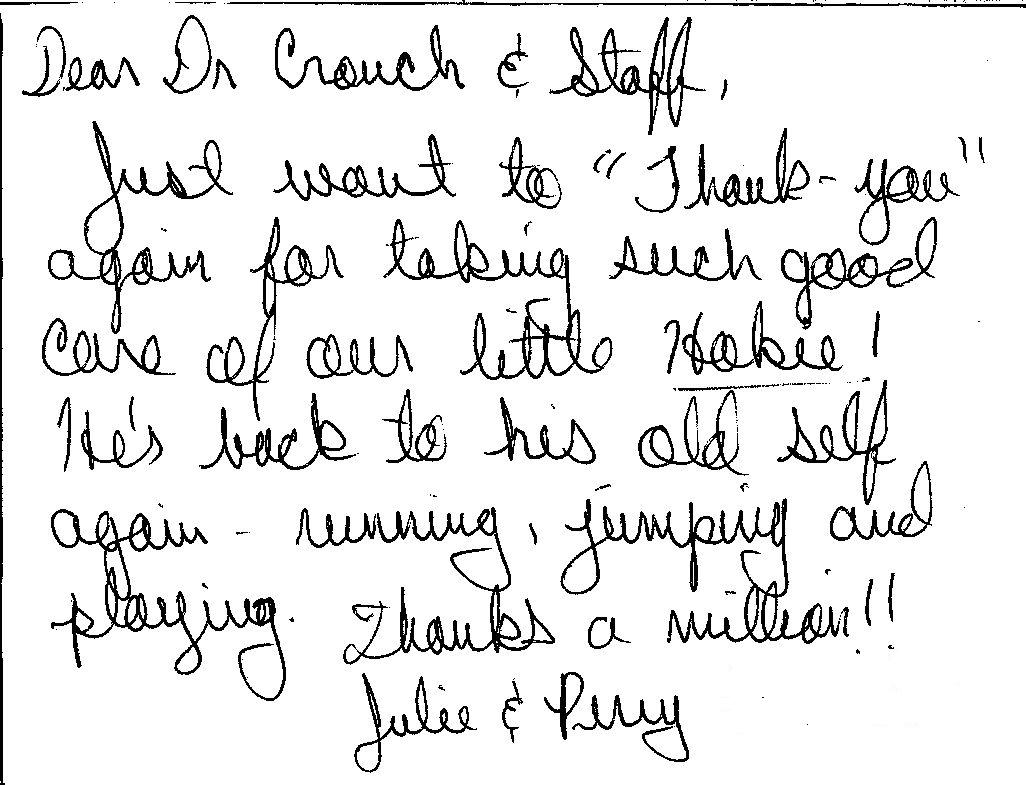 Dear Dr Crouch & Staff,
Just want to "Thank-you"
again for taking such good
care of our little Hokie!
He's back to his old self
again - running, jumping and
playing. Thanks a million!!
Julie & Perry